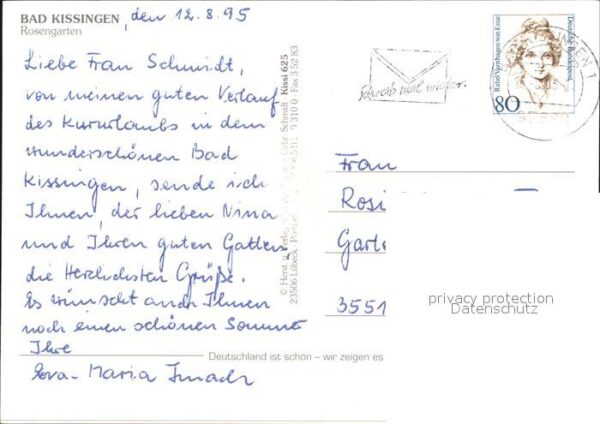 BAD KISSINGEN
Rosengarten
, den 12.8.95
Liebe Frau Schmidt,
von meinen guten Verlauf
des Kururlaubs in dem
wunderschönen Bad
Kissingen, sende ich
Ihnen, der lieben Nina
und Ihren guten Gatten
die Herzlichsten Grüße.
Es wünscht auch Ihnen
noch einen schönen Sommer
Ihre
Eva-Maria
Deutschland ist schön – wir zeigen es
© Herst. u. Verlag Schmidt
23506 Lübeck
Kissi 625
Fax 3 52 83
Schreib mal wieder.
Rahel Varnhagen von Ense
Deutsche Bundespost
80
Frau
Rosi
Gart
3551
privacy protection
Datenschutz